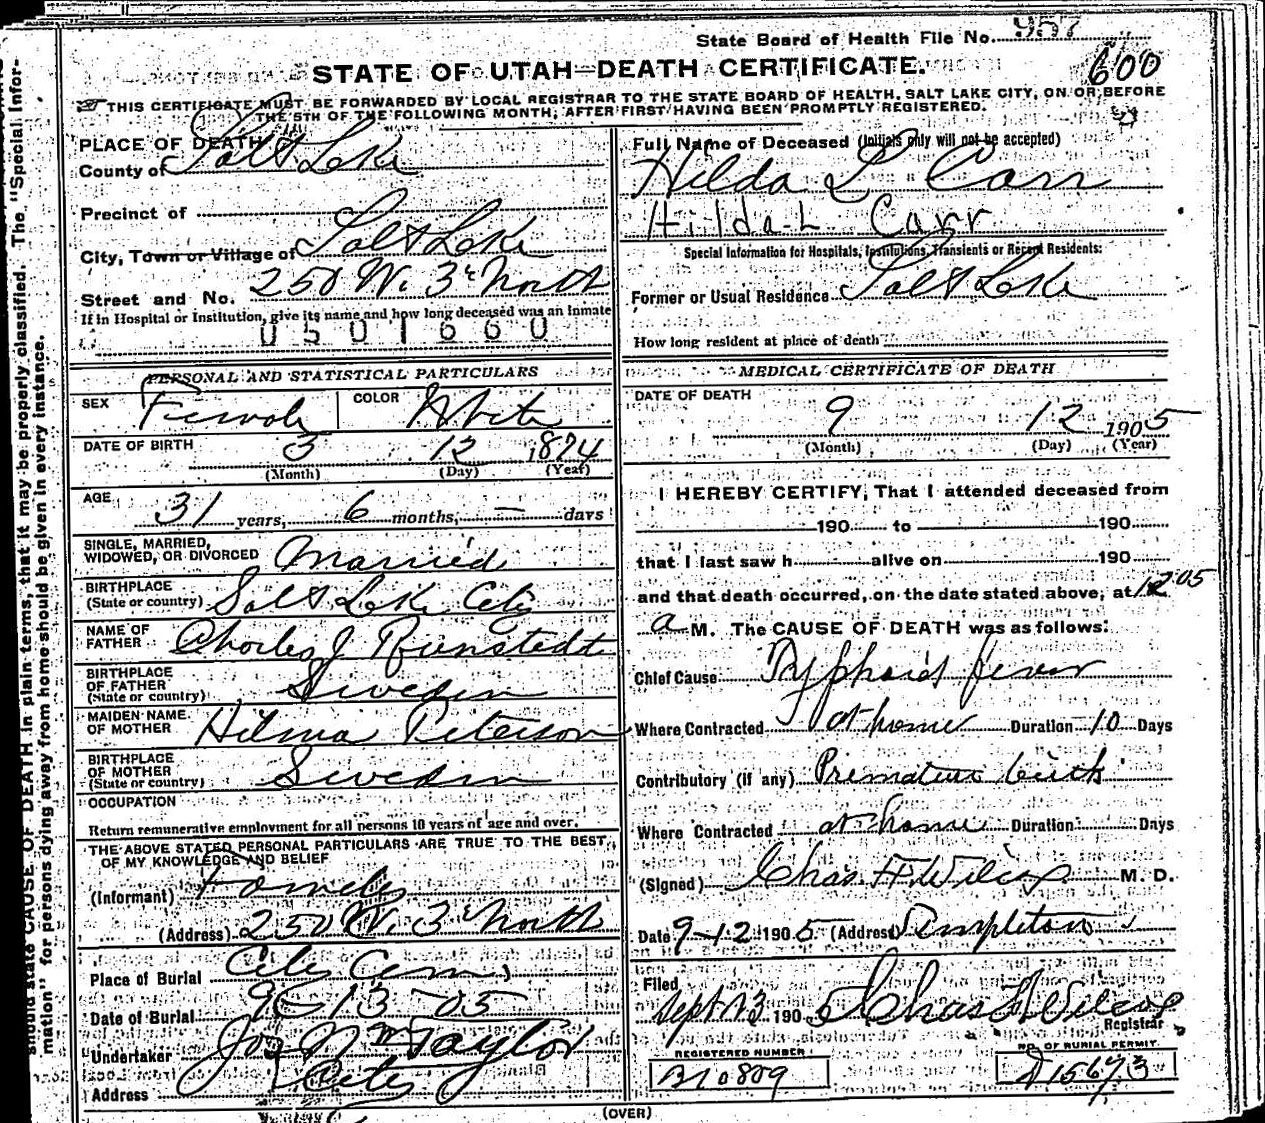 State Board of Health File No. 957
600
STATE OF UTAH—DEATH CERTIFICATE.
THIS CERTIFICATE MUST BE FORWARDED BY LOCAL REGISTRAR TO THE STATE BOARD OF HEALTH, SALT LAKE CITY, ON OR BEFORE
THE 5TH OF THE FOLLOWING MONTH; AFTER FIRST HAVING BEEN PROMPTLY REGISTERED.
PLACE OF DEATH
County of Salt Lake
Precinct of
City, Town or Village of Salt Lake
Street and No. 250 W. 3d North
If in Hospital or Institution, give its name and how long deceased was an inmate
0501660
PERSONAL AND STATISTICAL PARTICULARS
SEX Female COLOR White
DATE OF BIRTH 3 12 1874
(Month) (Day) (Year)
AGE 31 years, 6 months, — days
SINGLE, MARRIED,
WIDOWED, OR DIVORCED Married
BIRTHPLACE
(State or country) Salt Lake City
NAME OF
FATHER Charles J Runstedt
BIRTHPLACE
OF FATHER
(State or country) Sweden
MAIDEN NAME
OF MOTHER Hilma Peterson
BIRTHPLACE
OF MOTHER
(State or country) Sweden
OCCUPATION
Return remunerative employment for all persons 10 years of age and over.
THE ABOVE STATED PERSONAL PARTICULARS ARE TRUE TO THE BEST
OF MY KNOWLEDGE AND BELIEF
(Informant) Family
(Address) 250 W. 3d North
Place of Burial City Cem.
Date of Burial 9-13-05
Undertaker Jos Wm Taylor
Address City
Full Name of Deceased (Initials only will not be accepted)
Hilda L Carr
Hilda L Carr
Special Information for Hospitals, Institutions, Transients or Recent Residents:
Former or Usual Residence Salt Lake
How long resident at place of death
MEDICAL CERTIFICATE OF DEATH
DATE OF DEATH
9 12 1905
(Month) (Day) (Year)
I HEREBY CERTIFY, That I attended deceased from
190 to 190
that I last saw h alive on 190
and that death occurred, on the date stated above, at 12 05
a M. The CAUSE OF DEATH was as follows:
Chief Cause Typhoid fever
Where Contracted at home Duration 10 Days
Contributory (if any) Premature birth
Where Contracted at home Duration Days
(Signed) Chas. F. Wilcox M. D.
Date 9-12 1905 (Address) Templeton
Filed
Sept 13 1905 Chas F Wilcox
Registrar
REGISTERED NUMBER
B10809
NO. OF BURIAL PERMIT
D15673
(OVER)
should state CAUSE OF DEATH in plain terms, that it may be properly classified. The "Special Infor-
mation" for persons dying away from home should be given in every instance.